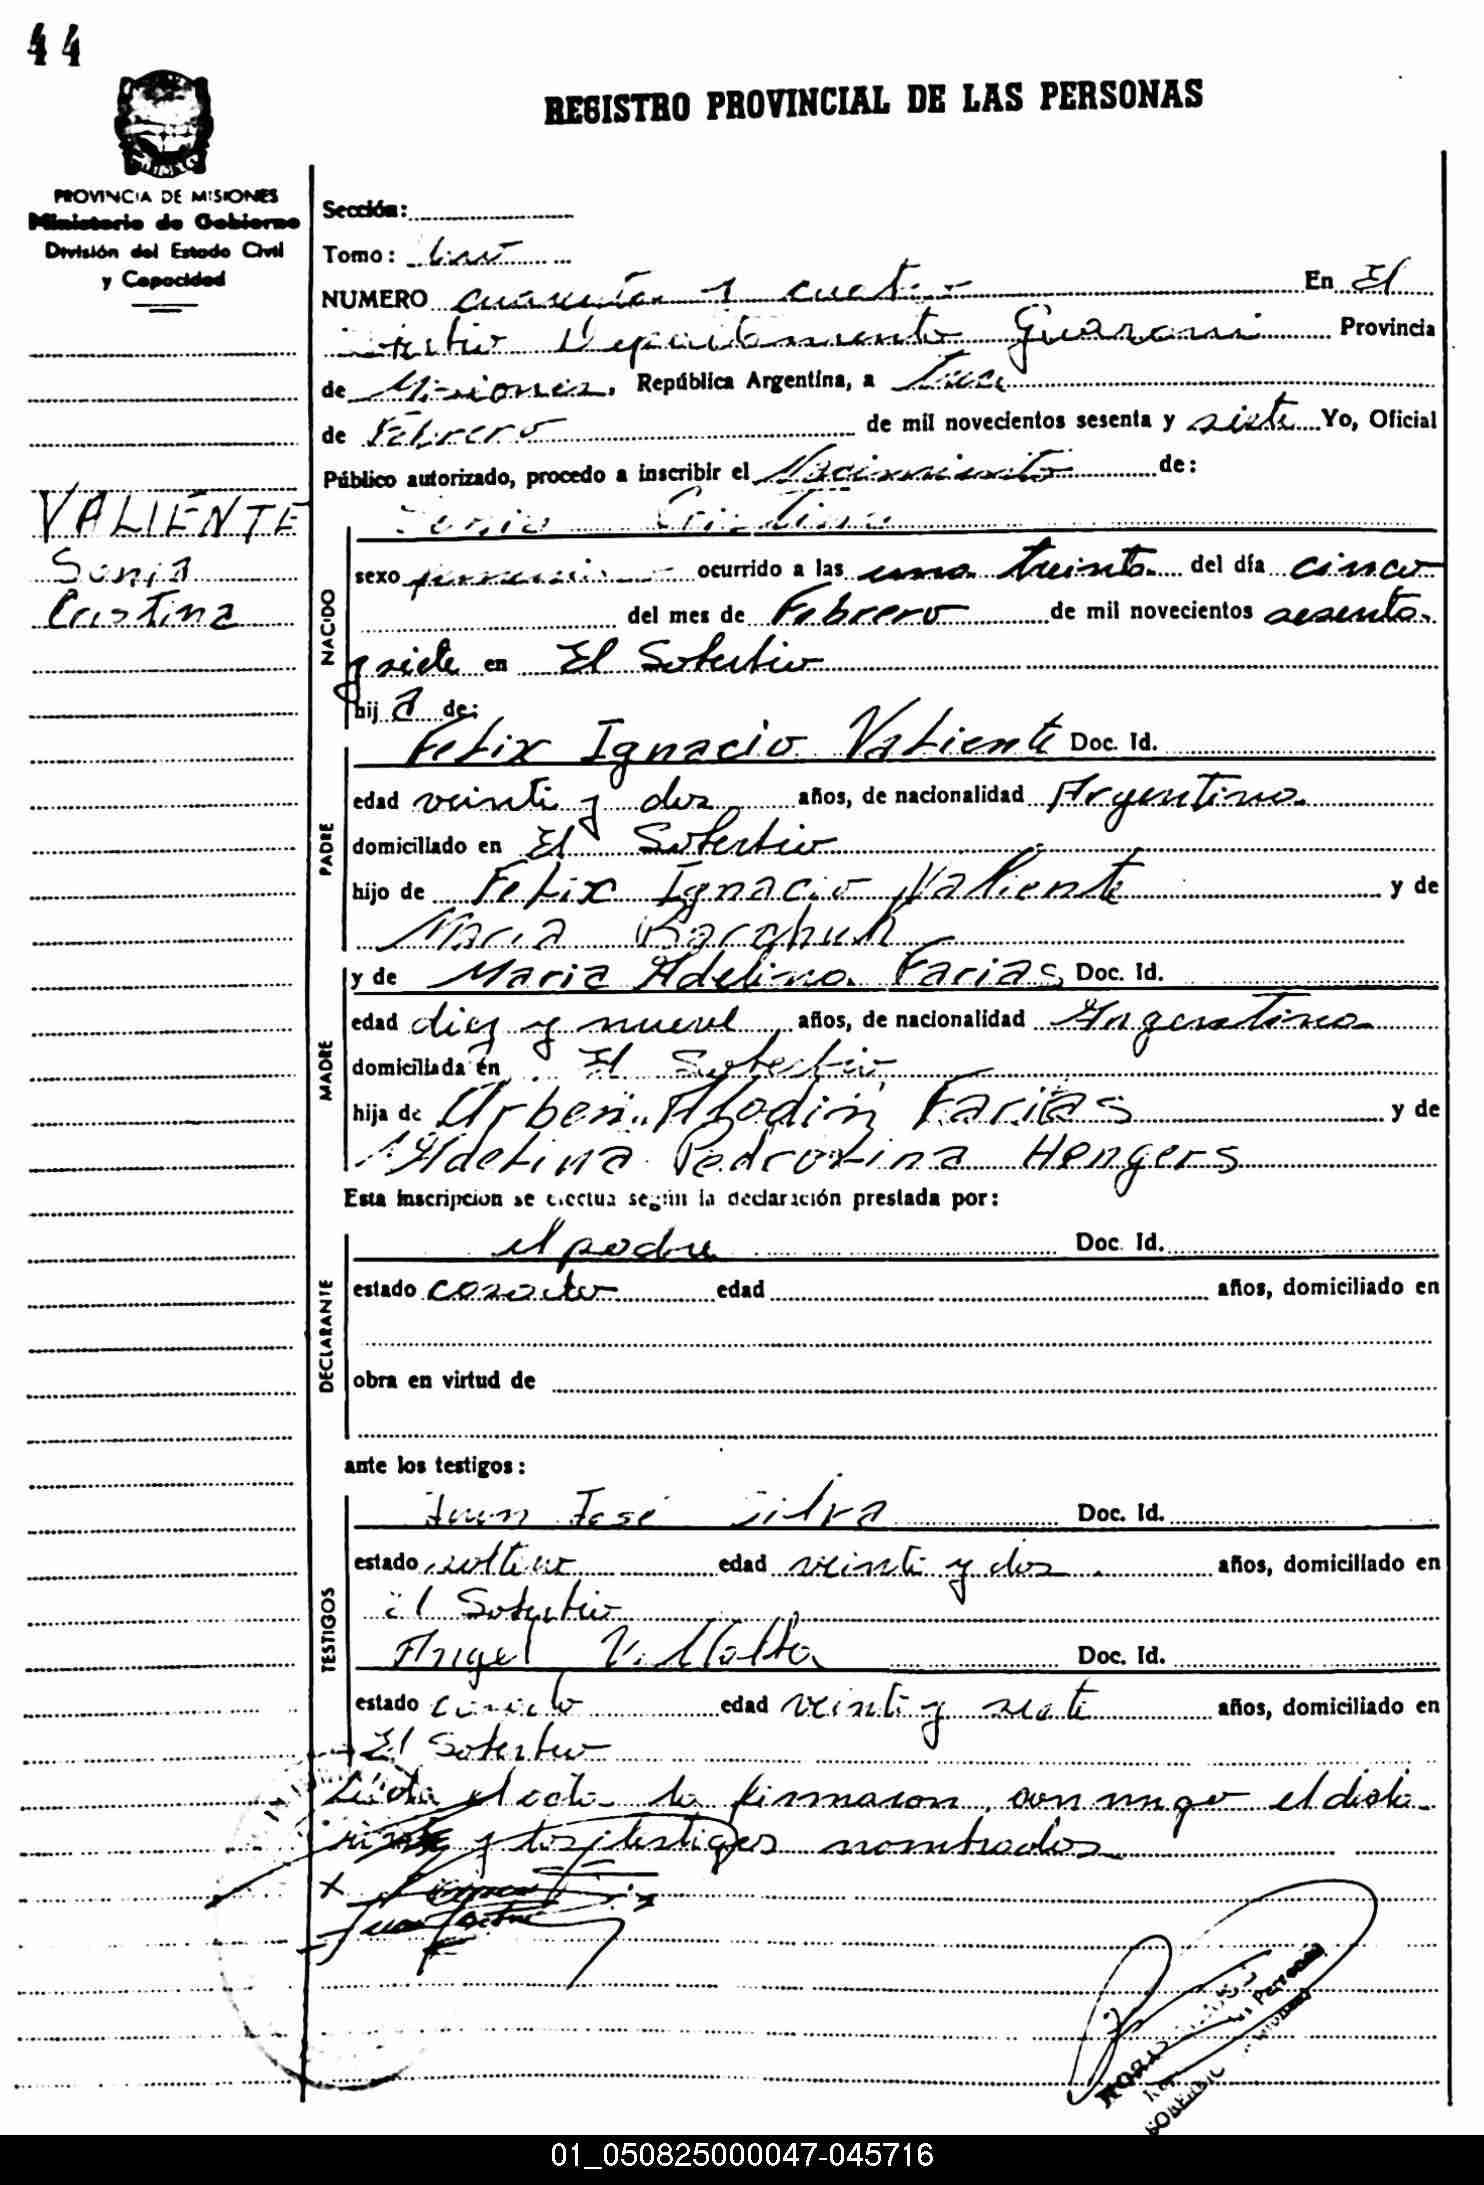 44
REGISTRO PROVINCIAL DE LAS PERSONAS
PROVINCIA DE MISIONES
Ministerio de Gobierno
División del Estado Civil
y Capacidad
Sección:
Tomo: uno
NUMERO cuarenta y cuatro En El
Soberbio Departamento Guarani Provincia
de Misiones, República Argentina, a
de Febrero de mil novecientos sesenta y siete Yo, Oficial
Público autorizado, procedo a inscribir el Nacimiento de:
VALIENTE
Sonia
Cristina
Sonia Cristina
NACIDO
sexo femenino ocurrido a las una treinta del día cinco
del mes de Febrero de mil novecientos sesenta
y siete en El Soberbio
hij a de:
PADRE
Felix Ignacio Valiente Doc. Id.
edad veinti y dos años, de nacionalidad Argentino
domiciliado en El Soberbio
hijo de Felix Ignacio Valiente y de
Maria
MADRE
y de Maria Adelina Farias Doc. Id.
edad diez y nueve años, de nacionalidad Argentina
domiciliada en El Soberbio
hija de Urben Alodin Farias y de
Adelina Pedrolina Hengers
Esta inscripción se efectua según la declaración prestada por:
DECLARANTE
el padre Doc. Id.
estado casado edad años, domiciliado en
obra en virtud de
ante los testigos:
TESTIGOS
Juan José Silva Doc. Id.
estado soltero edad veinti y dos años, domiciliado en
El Soberbio
Angel Villalba Doc. Id.
estado casado edad veinti y siete años, domiciliado en
El Soberbio
Leida el acta la firmaron conmigo el decla-
rante y los testigos nombrados
01_050825000047-045716